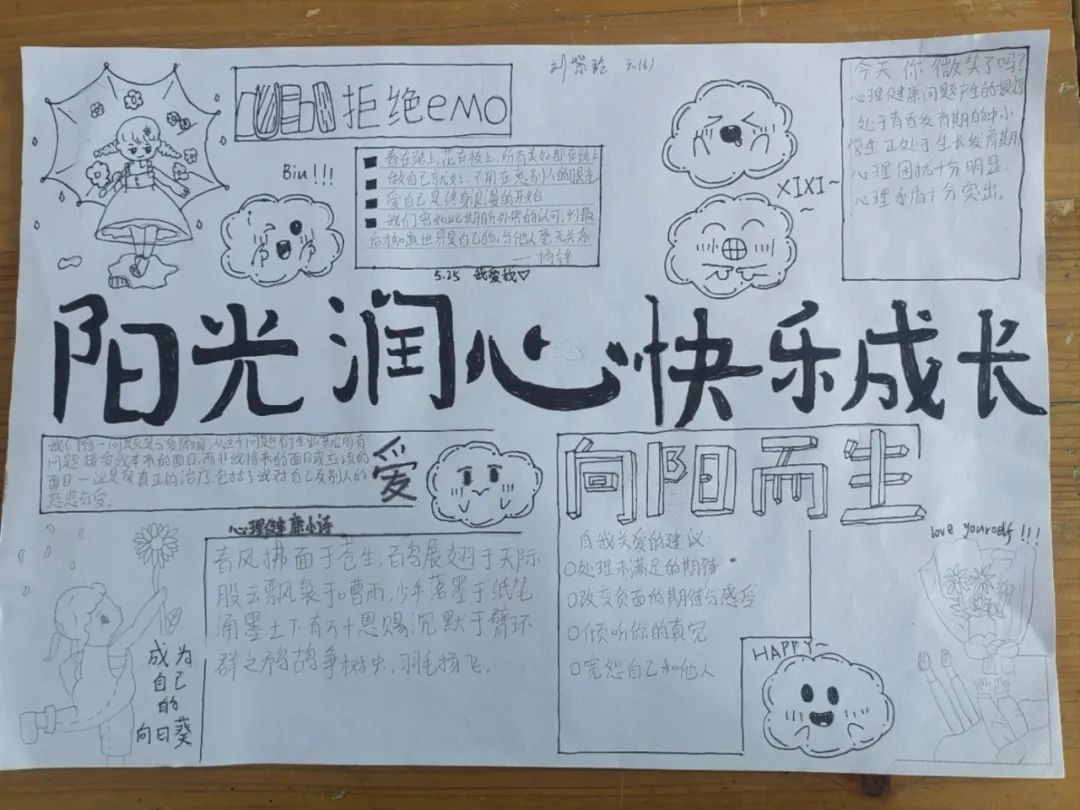 拒绝emo
Biu!!!
春在路上,花在枝上,所有美好都在路上
做自己就好,不用在意别人的眼光
爱自己是终身浪漫的开始
我们曾如此期盼外界的认可,到最
后才知道世界是自己的,与他人毫无关系
——杨绛
5.25 我爱我
XIXI~
今天你微笑了吗?
心理健康问题产生的根源
处于青春发育期的中小
学生正处于生长发育期,
心理困扰十分明显,
心理矛盾十分突出。
阳光润心快乐成长
问题接受我本来的面目,而非我将来的面目或应该的
面目一这是爱真正的治疗,包括了我对自己及别人的
慈悲与爱。
爱
心理健康小诗
春风拂面于苍生,百鸟展翅于天际
股云飘袅于嘈雨,少年落墨于纸笔
涌墨土下有万十恩赐,沉默于臂环
群之鸦鸪争树虫,羽毛扬飞。
成为
自己
的
向日葵
向阳而生
自我关爱的建议:
处理未满足的期待
改变负面的期待与感受
倾听你的真觉
宽恕自己和他人
HAPPY~
love yourself!!!